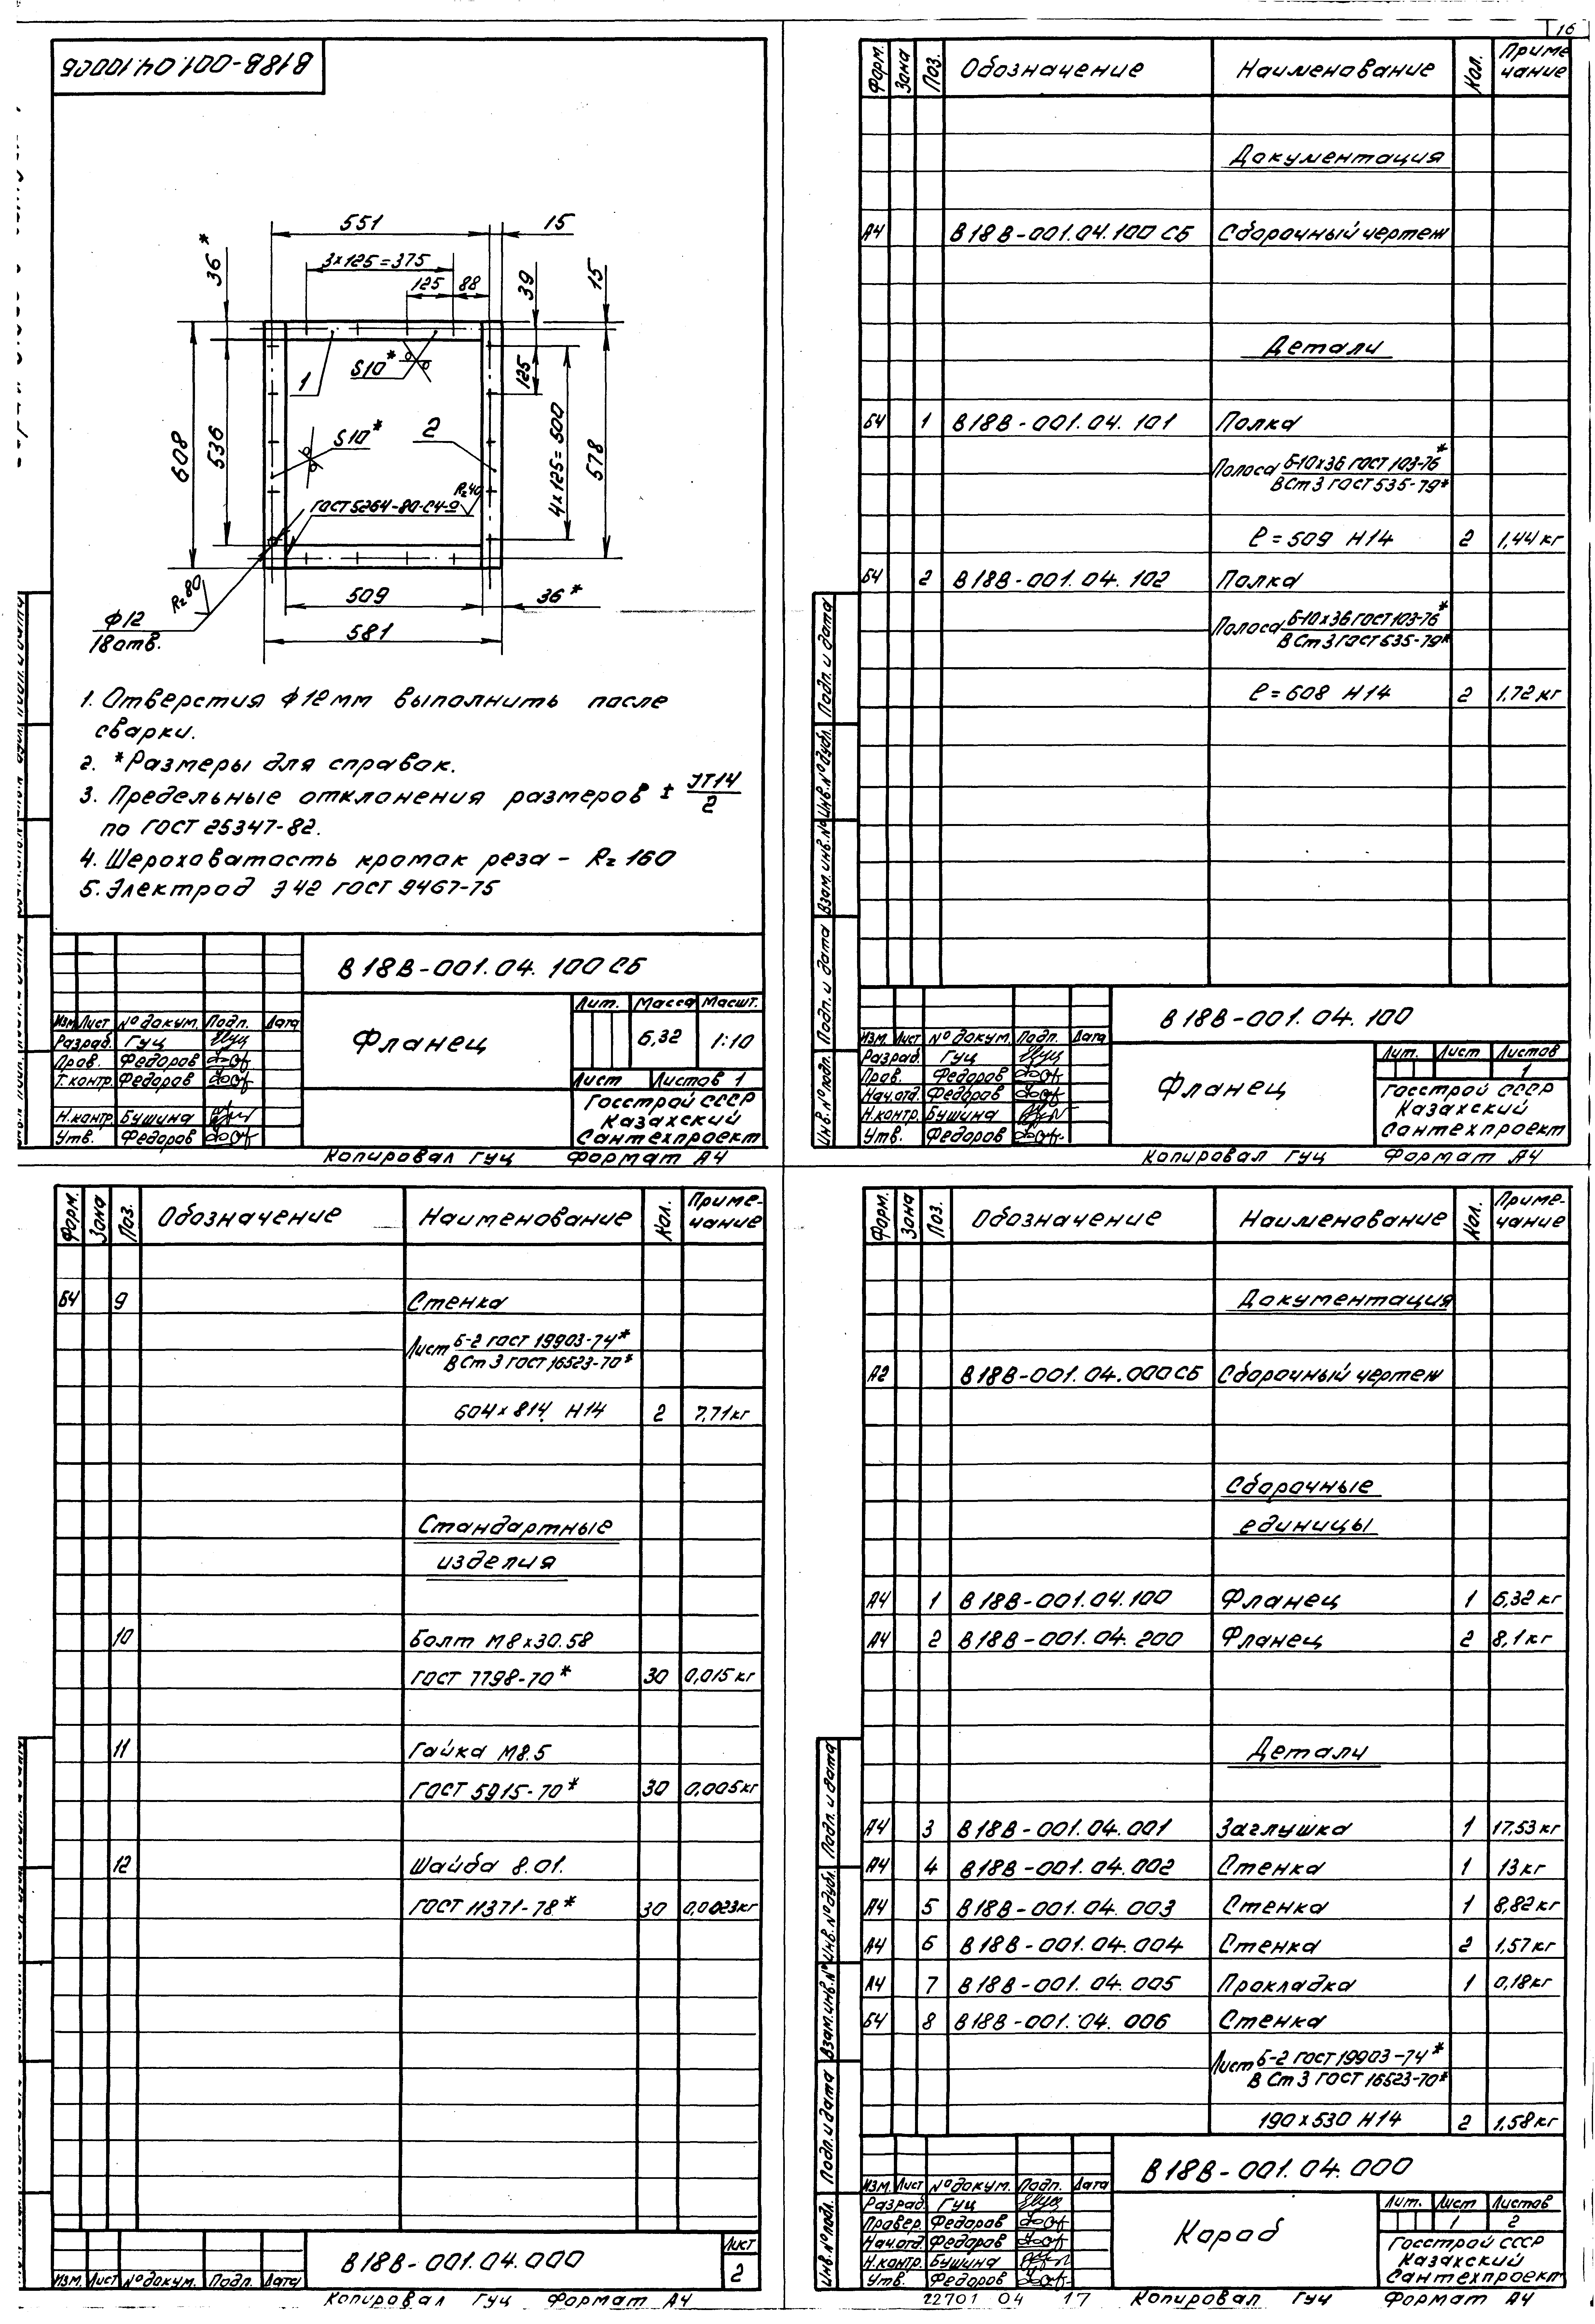 16
В18В-001.04.100СБ
551
15
36*
3×125=375
125
88
39
15
S10*
1
125
608
536
S10*
2
4×125=500
578
Rz40
ГОСТ 5264-80-С4-
Rz80
509
36*
ф12
18 отв.
581
1. Отверстия ф12мм выполнить после
сварки.
2. *Размеры для справок.
3. Предельные отклонения размеров ± JT14/2
по ГОСТ 25347-82.
4. Шероховатость кромок реза - Rz 160
5. Электрод Э42 ГОСТ 9467-75
В18В-001.04.100 СБ
Лит. Масса Масшт.
Изм. Лист № докум. Подп. Дата
Фланец
6,32
1:10
Разраб. Гуц
Пров. Федоров
Т.контр. Федоров
Лист Листов 1
Н.контр. Бушина
Утв. Федоров
Госстрой СССР
Казахский
Сантехпроект
Копировал Гуц Формат А4
Форм. Зона Поз. Обозначение Наименование Кол. Приме чание
Документация
А4 В18В-001.04.100 СБ Сборочный чертеж
Детали
Б4 1 В18В-001.04.101 Полка
Полоса Б-10×36 ГОСТ 103-76*
ВСт3 ГОСТ 535-79*
ℓ=509 Н14 2 1,44 кг
Б4 2 В18В-001.04.102 Полка
Полоса Б-10×36 ГОСТ 103-76*
ВСт3 ГОСТ 535-79*
ℓ=608 Н14 2 1,72 кг
Инв.№ подл. Подп. и дата Взам.инв.№ Инв.№ дубл. Подп. и дата
В18В-001.04.100
Изм. Лист № докум. Подп. Дата
Разраб. Гуц
Пров. Федоров
Нач.отд. Федоров
Н.контр. Бушина
Утв. Федоров
Фланец
Лит. Лист Листов
1
Госстрой СССР
Казахский
Сантехпроект
Копировал Гуц Формат А4
Форм. Зона Поз. Обозначение Наименование Кол. Приме-чание
Б4 9 Стенка
Лист Б-2 ГОСТ 19903-74*
ВСт3 ГОСТ 16523-70*
604×814 Н14 2 7,71кг
Стандартные
изделия
10 Болт М8×30.58
ГОСТ 7798-70* 30 0,015 кг
11 Гайка М8.5
ГОСТ 5915-70* 30 0,005кг
12 Шайба 8.01.
ГОСТ 11371-78* 30 0,0023кг
В18В-001.04.000
Лист
2
Изм. Лист № докум. Подп. Дата
Копировал Гуц Формат А4
Форм. Зона Поз. Обозначение Наименование Кол. Приме-чание
Документация
А2 В18В-001.04.000СБ Сборочный чертеж
Сборочные
единицы
А4 1 В18В-001.04.100 Фланец 1 6,32 кг
А4 2 В18В-001.04.200 Фланец 2 8,1кг
Детали
А4 3 В18В-001.04.001 Заглушка 1 17,53 кг
А4 4 В18В-001.04.002 Стенка 1 13кг
А4 5 В18В-001.04.003 Стенка 1 8,82кг
А4 6 В18В-001.04.004 Стенка 2 1,57кг
А4 7 В18В-001.04.005 Прокладка 1 0,18кг
Б4 8 В18В-001.04.006 Стенка
Лист Б-2 ГОСТ 19903-74*
ВСт3 ГОСТ 16523-70*
190×530 Н14 2 1,58кг
Инв.№ подл. Подп. и дата Взам.инв.№ Инв.№ дубл. Подп. и дата
В18В-001.04.000
Изм. Лист № докум. Подп. Дата
Разраб. Гуц
Провер. Федоров
Нач.отд. Федоров
Н.контр. Бушина
Утв. Федоров
Короб
Лит. Лист Листов
1 2
Госстрой СССР
Казахский
Сантехпроект
22701 04 17 Копировал Гуц Формат А4